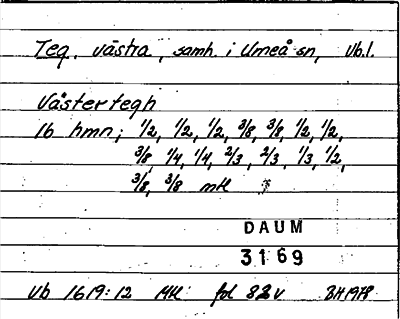 Teg, västra, samh. i Umeå sn, Vb.l.
Västertegh
16 hmn; 1/2, 1/2, 1/2, 3/8, 3/8, 1/2, 1/2,
3/8, 1/4, 1/4, 2/3, 2/3, 1/3, 1/2,
3/8, 3/8 mtl
DAUM
3169
Vb 1619:12 Mtl fol 82v BH 1978